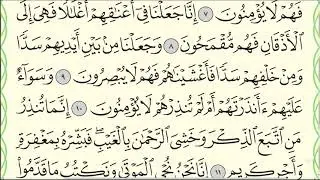 فَهُمْ لَا يُؤْمِنُونَ ٧ إِنَّا جَعَلْنَا فِىٓ أَعْنَـٰقِهِمْ أَغْلَـٰلًا فَهِىَ إِلَى
ٱلْأَذْقَانِ فَهُم مُّقْمَحُونَ ٨ وَجَعَلْنَا مِنۢ بَيْنِ أَيْدِيهِمْ سَدًّا
وَمِنْ خَلْفِهِمْ سَدًّا فَأَغْشَيْنَـٰهُمْ فَهُمْ لَا يُبْصِرُونَ ٩ وَسَوَآءٌ
عَلَيْهِمْ ءَأَنذَرْتَهُمْ أَمْ لَمْ تُنذِرْهُمْ لَا يُؤْمِنُونَ ١٠ إِنَّمَا تُنذِرُ
مَنِ ٱتَّبَعَ ٱلذِّكْرَ وَخَشِىَ ٱلرَّحْمَـٰنَ بِٱلْغَيْبِ ۖ فَبَشِّرْهُ بِمَغْفِرَةٍ
وَأَجْرٍ كَرِيمٍ ١١ إِنَّا نَحْنُ نُحْىِ ٱلْمَوْتَىٰ وَنَكْتُبُ مَا قَدَّمُوا۟